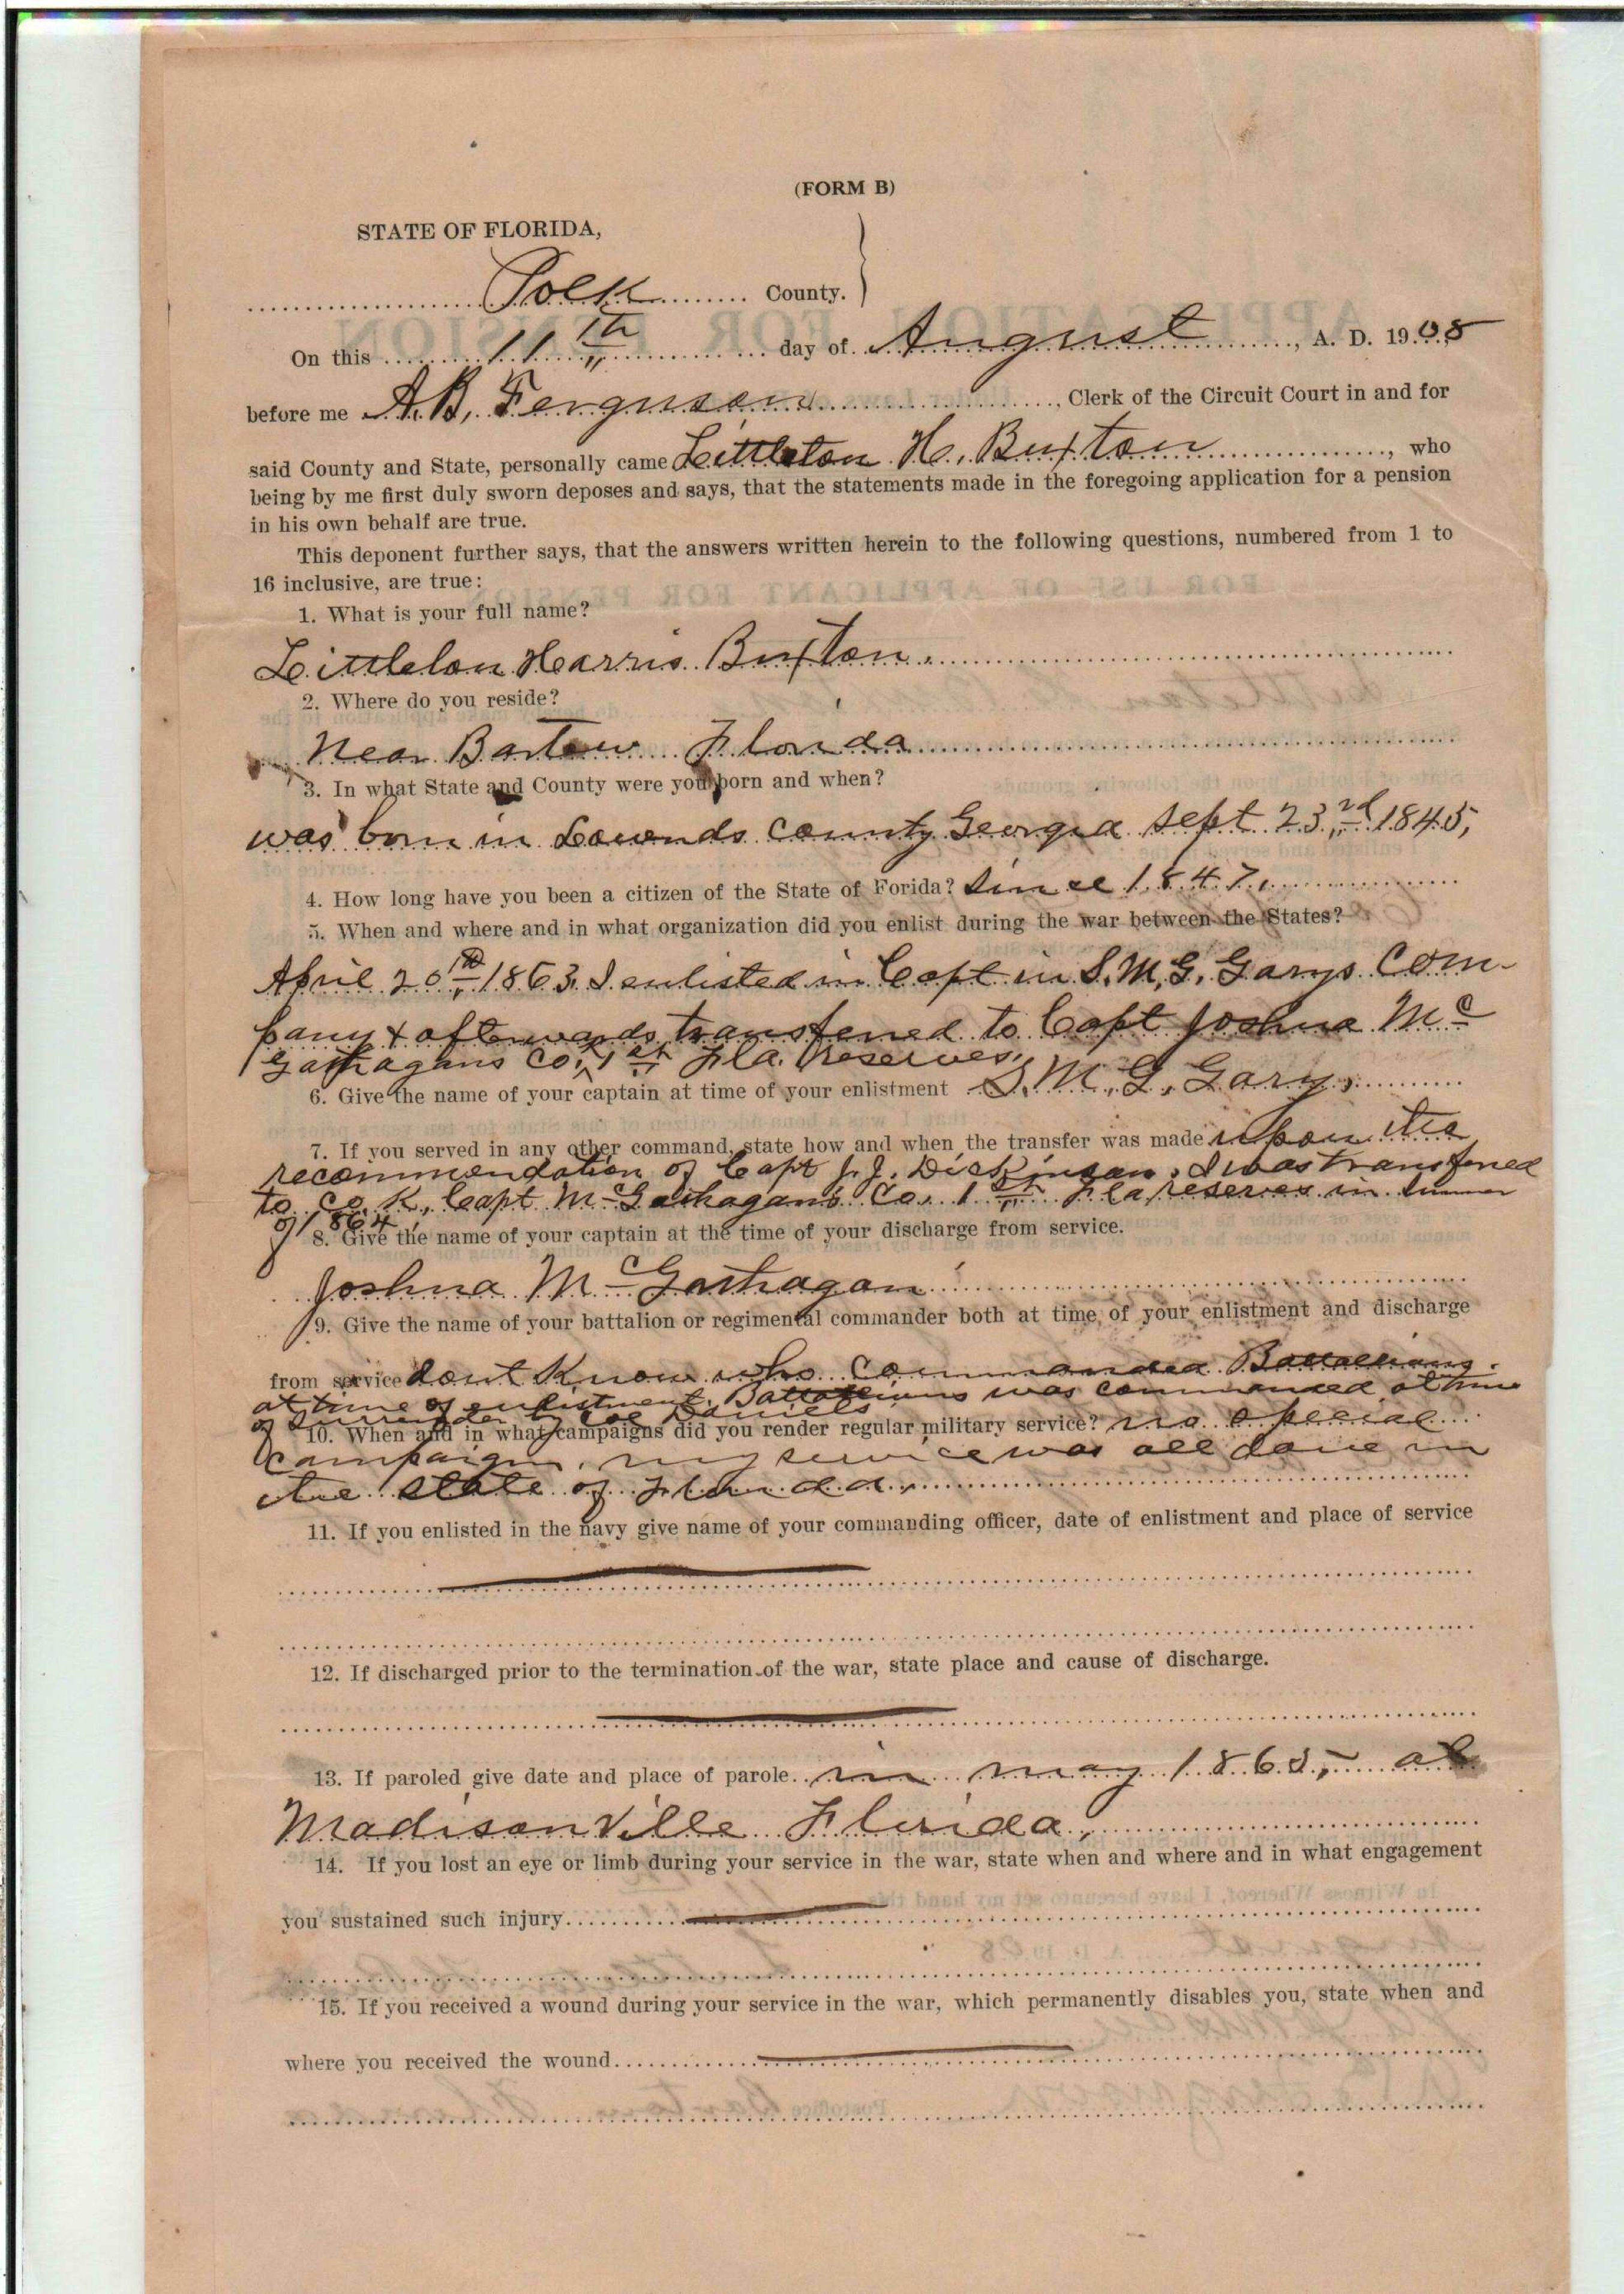 (FORM B)
STATE OF FLORIDA,
Polk County.
On this 11th day of August, A. D. 1908
before me A. B. Ferguson, Clerk of the Circuit Court in and for
said County and State, personally came Littleton H. Buxton, who
being by me first duly sworn deposes and says, that the statements made in the foregoing application for a pension
in his own behalf are true.
This deponent further says, that the answers written herein to the following questions, numbered from 1 to
16 inclusive, are true:
1. What is your full name?
Littleton Harris Buxton.
2. Where do you reside?
Near Bartow Florida
3. In what State and County were you born and when?
was born in Lownds County Georgia Sept 23rd 1845,
4. How long have you been a citizen of the State of Forida? Since 1847,
5. When and where and in what organization did you enlist during the war between the States?
April 20th 1863. I enlisted in Capt in S. M. G. Garys Com-
pany & afterwards transfered to Capt Joshua Mc
Gathagans Co. K, 1st Fla. reserves,
6. Give the name of your captain at time of your enlistment S. M. G. Gary,
7. If you served in any other command, state how and when the transfer was made upon the
recommendation of Capt J. J. Dickinson. I was transfered
to Co. K, Capt McGathagans Co. 1st Fla reserves in Summer
of 1864,
8. Give the name of your captain at the time of your discharge from service.
Joshua McGathagan
9. Give the name of your battalion or regimental commander both at time of your enlistment and discharge
from service dont Know who Commanded
at time of enlistment. was commanded at time
of Surrender by Col Daniels
10. When and in what campaigns did you render regular military service? no special
campaign, my service was all done in
the State of Florida,
11. If you enlisted in the navy give name of your commanding officer, date of enlistment and place of service
12. If discharged prior to the termination of the war, state place and cause of discharge.
13. If paroled give date and place of parole in may 1865, at
Madisonville Florida,
14. If you lost an eye or limb during your service in the war, state when and where and in what engagement
you sustained such injury
15. If you received a wound during your service in the war, which permanently disables you, state when and
where you received the wound